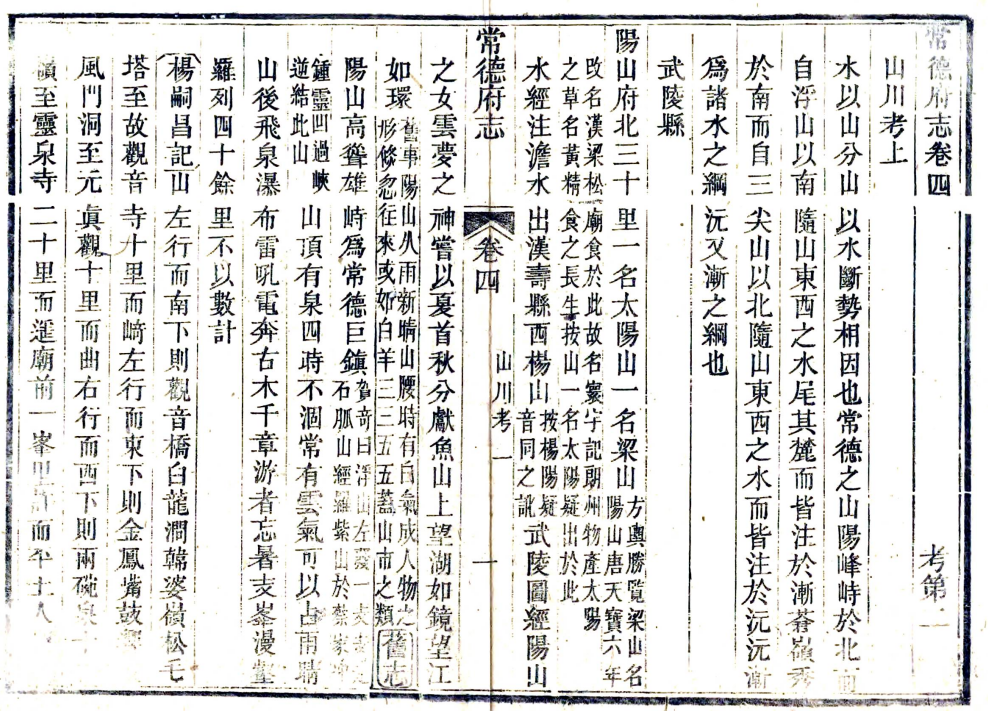 常德府志卷四　考第二
山川考上
水以山分山以水斷勢相因也常德之山陽峰峙於北而
自浮山以南隨山東西之水尾其麓而皆注於漸蒼嶺秀
於南而自三尖山以北隨山東西之水而皆注於沅沅漸
爲諸水之綱沅又漸之綱也
武陵縣
陽山府北三十里一名太陽山一名梁山方輿勝覽梁山名陽山唐天寶六年
改名漢梁松廟食於此故名寰宇記朗州物產太陽之草名黃精食之長生按山一名太陽疑出於此
水經注澹水出漢壽縣西楊山按楊陽疑音同之訛武陵圖經陽山
常德府志　卷四　山川考一　一
之女雲夢之神嘗以夏首秋分獻魚山上望湖如鏡望江
如環舊事陽山久雨新晴山腰時有白氣成人物之形倏忽往來或如白羊三三五五蓋山市之類舊志
陽山高聳雄峙爲常德巨鎮賀奇曰浮山左發一支石脈山經羅紫山於蔡家
鍾靈凹過峽逆結此山山頂有泉四時不涸常有雲氣可以占雨晴
山後飛泉瀑布雷吼電奔古木千章游者忘暑支峯漫壑
羅列四十餘里不以數計
楊嗣昌記山左行而南下則觀音橋白龍澗韓婆嶺松毛
塔至故觀音寺十里而崎左行而東下則金鳳嘴鼓
風門洞至元眞觀十里而曲右行而西下則兩碗泉
嶺至靈泉寺二十里而遥廟前一峯里許而平土人